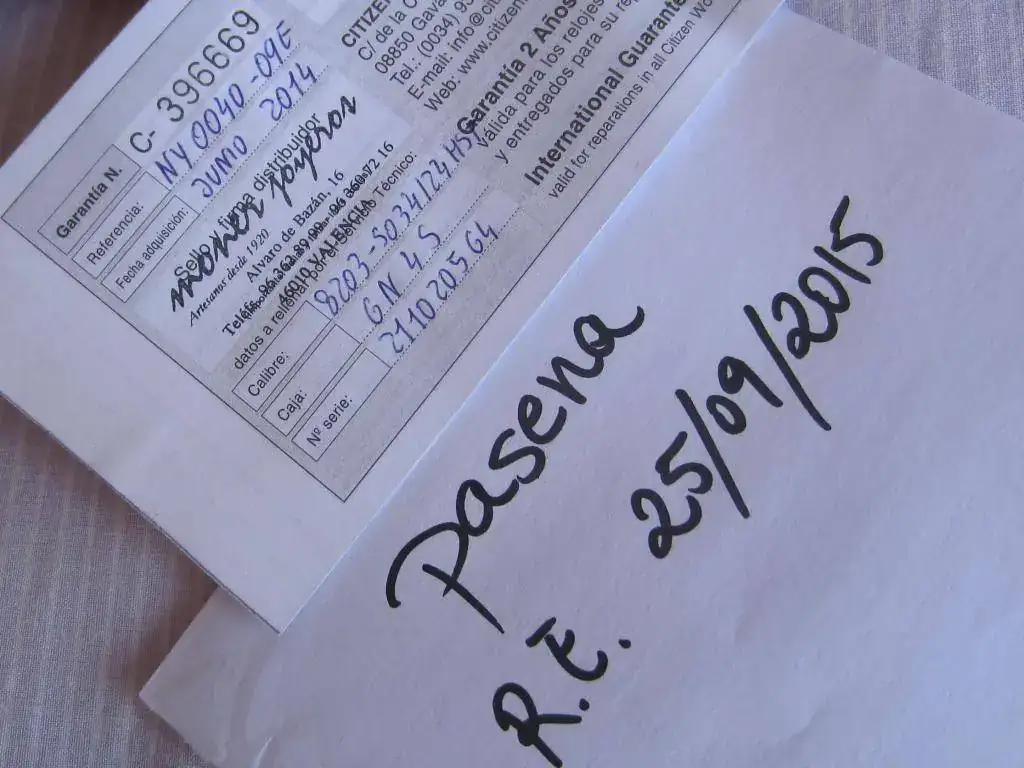 Garantía N.
C- 396669
Referencia:
NY 0040 -09E
Fecha adquisición:
JUNIO 2014
Sello firma distribuidor
moner joyeros
Artesanos desde 1920
Alvaro de Bazán, 16
46010 VALENCIA
datos a rellenar por Servicio Técnico:
Calibre:
8203-S034124 HSG
Caja:
GN 4 S
Nº serie:
211020564
CITIZEN
C/ de la
08850 Gavà
Tel.: (0034) 93
E-mail: info@citizen
Web: www.citizen
Garantía 2 Años
válida para los relojes
y entregados para su
International Guarantee
valid for reparations in all Citizen
Pasena
R.E. 25/09/2015